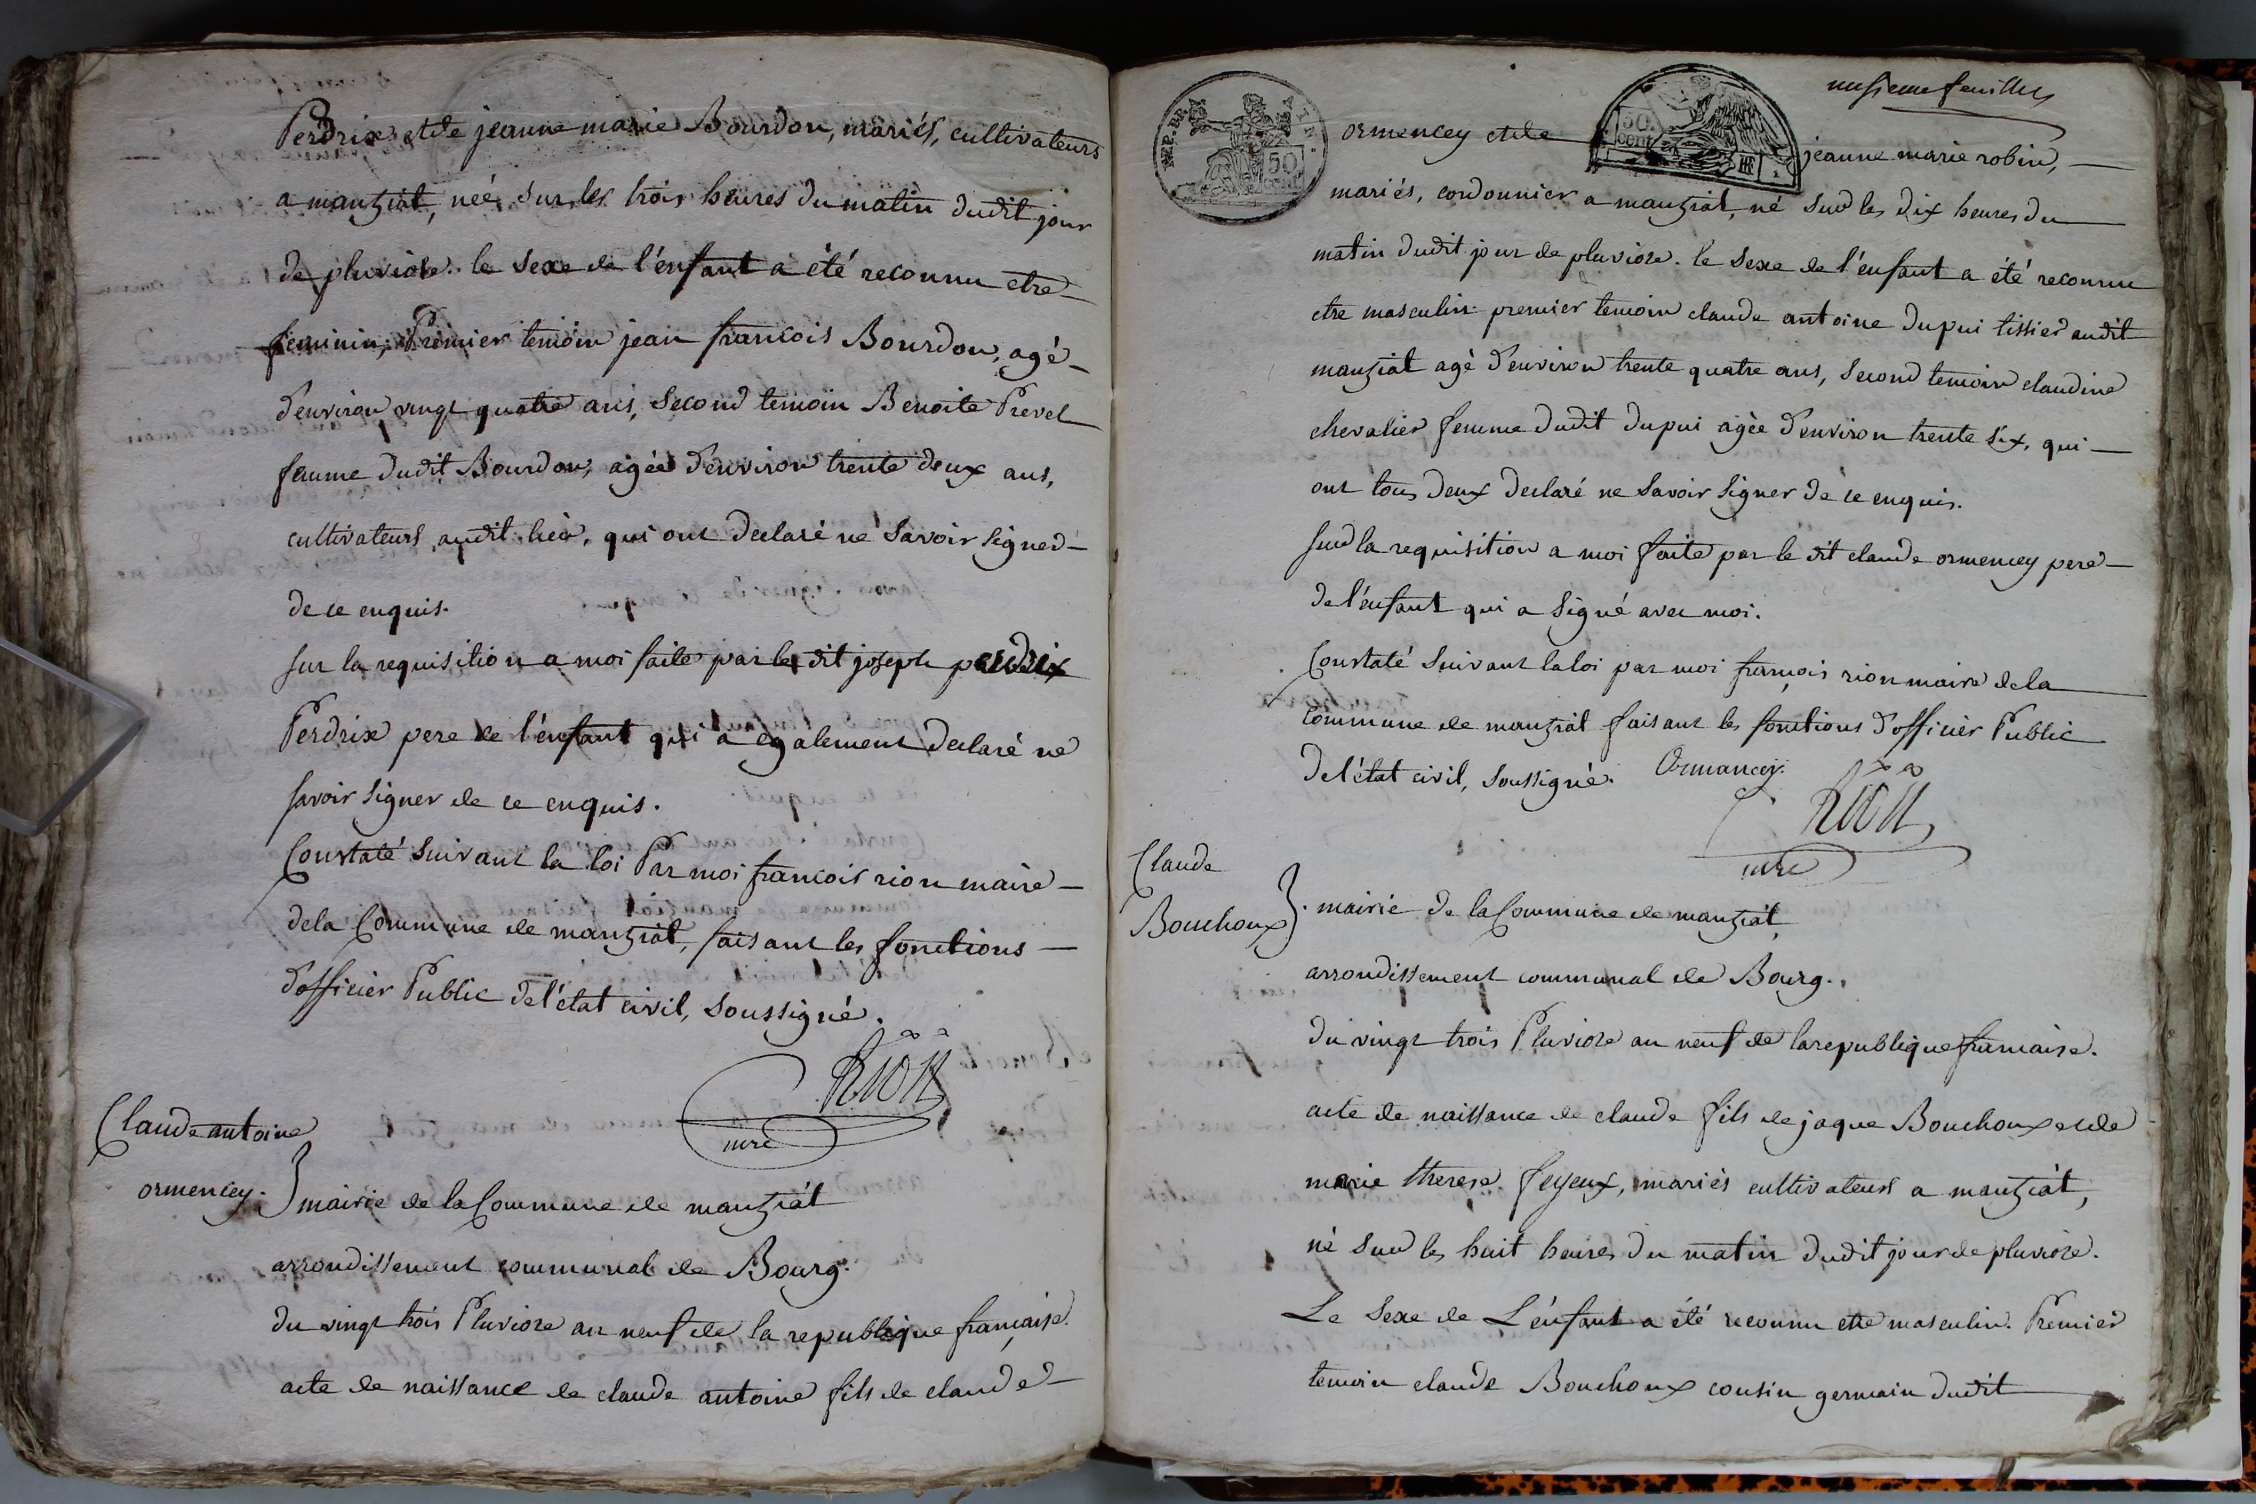 Perdrix et de jeanne marie Bourdon, mariés, cultivateurs
a manziat, neé sur les trois heures du matin dudit jour
de pluviose. le sexe de l'enfant a été reconnu etre
feminin, Premier temoin jean francois Bourdon, agé
d'environ vingt quatre ans, second temoin Benoite Prevel
femme dudit Bourdon, agée d'environ trente deux ans,
cultivateurs audit lieu, qui ont declaré ne savoir signer
de ce enquis.
sur la requisition a moi faite par le dit joseph perdrix
Perdrix pere de l'enfant qui a egalement declaré ne
savoir signer de ce enquis.
Constaté suivant la loi Par moi francois rion maire
de la Commune de manziat, faisant les fonctions
d'officier Public de l'état civil, soussigné.
Rion
mre
Claude antoine
ormencey.
mairie de la Commune de manziat
arrondissement communal de Bourg.
du vingt trois Pluviose an neuf de la republique française.
acte de naissance de claude antoine fils de claude
REP. FRA
50 cent
50 cent
RF
feuillet
ormencey et de jeanne marie robin,
mariés, cordonnier a manziat, né sur les dix heures du
matin dudit jour de pluviose. le sexe de l'enfant a été reconnu
etre masculin. premier temoin claude antoine dupui tissier audit
manziat agé d'environ trente quatre ans, second temoin claudine
chevalier femme dudit dupui agée d'environ trente six, qui
ont tous deux declaré ne savoir signer de ce enquis.
sur la requisition a moi faite par le dit claude ormencey pere
de l'enfant qui a signé avec moi.
Constaté suivant la loi par moi françois rion maire de la
commune de manziat faisant les fonctions d'officier Public
de l'état civil, soussigné. Ormancey.
Rion
mre
Claude
Bouchoux
mairie de la Commune de manziat
arrondissement communal de Bourg.
du vingt trois Pluviose an neuf de la republique française.
acte de naissance de claude fils de jaque Bouchoux et de
marie therese feyeux, mariés cultivateurs a manziat,
né sur les huit heures du matin dudit jour de pluviose.
Le sexe de L'enfant a été reconnu etre masculin. Premier
temoin claude Bouchoux cousin germain dudit